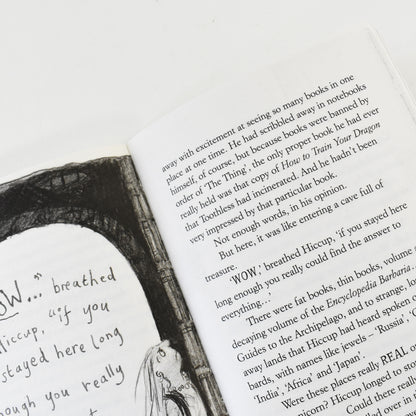 WOW..." breathed
Hiccup, "if you
stayed here long
enough you really
away with excitement at seeing so many books in one
place at one time. He had scribbled away in notebooks
himself, of course, but because books were banned by
order of 'The Thing', the only proper book he had ever
really held was that copy of How to Train Your Dragon
that Toothless had incinerated. And he hadn't been
very impressed by that particular book.
Not enough words, in his opinion.
But here, it was like entering a cave full of
treasure.
'WOW,' breathed Hiccup, 'if you stayed here
long enough you really could find the answer to
everything...'
There were fat books, thin books, volume
decaying volume of the Encyclopedia Barbaria
Guides to the Archipelago, and to strange, lo
away lands that Hiccup had heard spoken
bards, with names like jewels – 'Russia', 'C
'India', 'Africa' and 'Japan'.
Were these places really REAL o
Hiccup longed to s
Could there rea
and over in